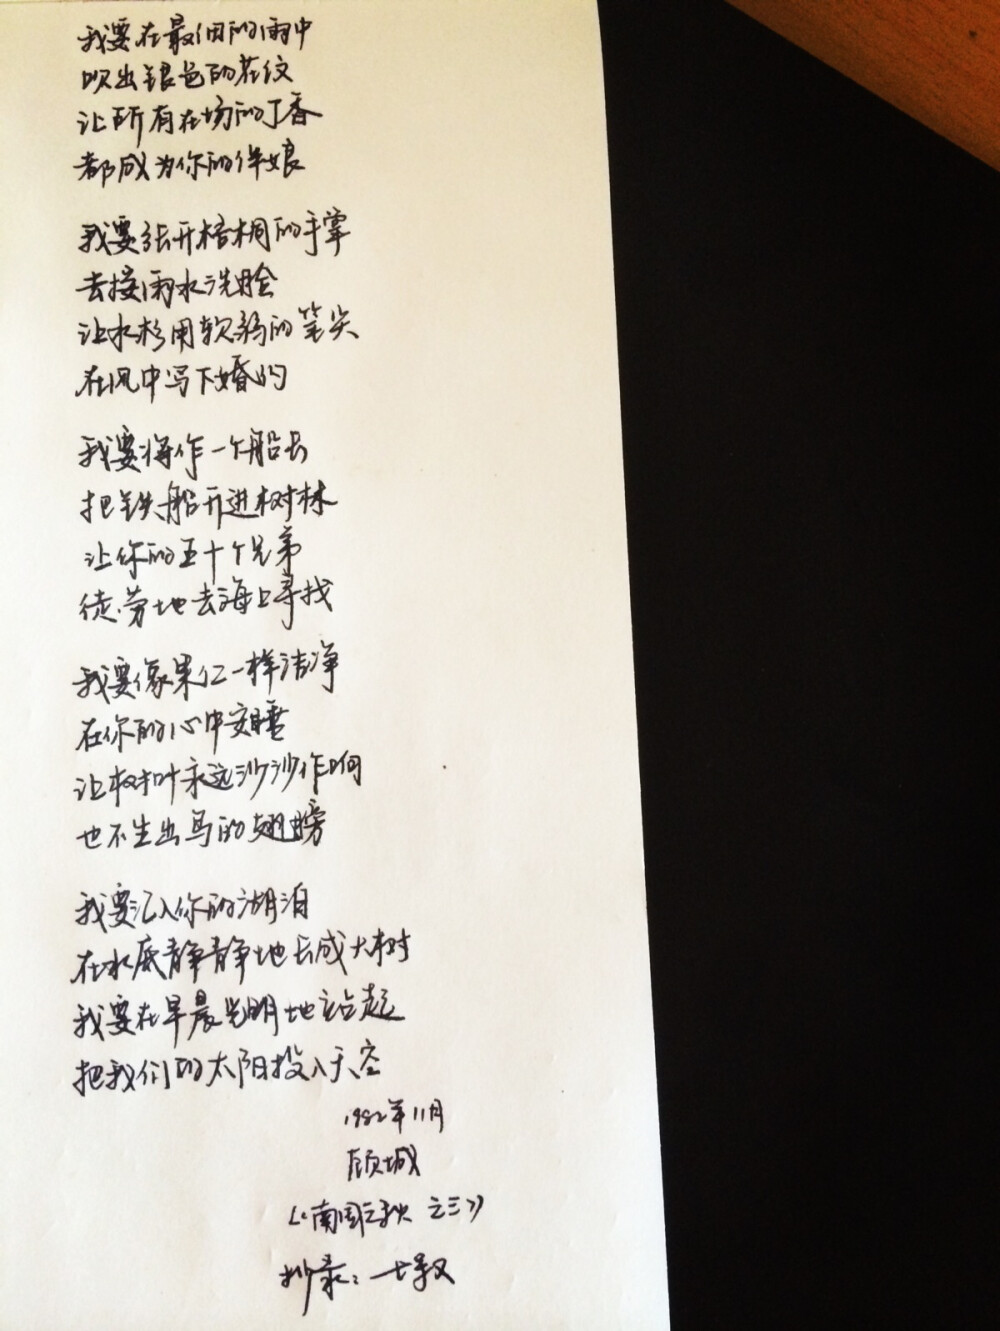 我要在最细的雨中
吹出银色的花纹
让所有在场的丁香
都成为你的伴娘
我要张开梧桐的手掌
去接雨水洗脸
让水杉用软弱的笔尖
在风中写下婚约
我要将作一个船长
把铁船开进树林
让你的五十个兄弟
徒劳地去海上寻找
我要像果仁一样洁净
在你的心中安睡
让树叶永远沙沙作响
也不生出鸟的翅膀
我要汇入你的湖泊
在水底静静地长成大树
我要在早晨光明地站起
把我们的太阳投入天空
1982年11月
顾城
《南国之秋 之三》
抄录：